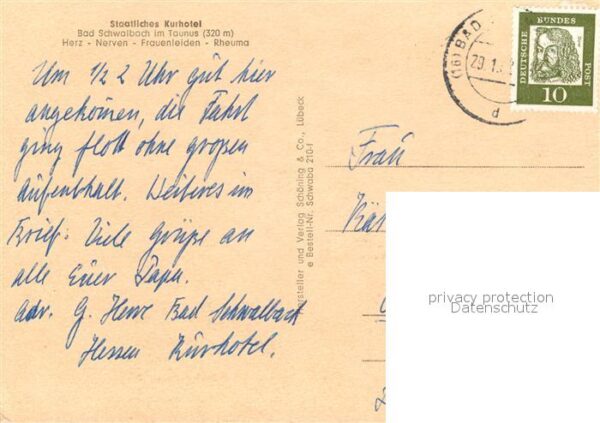 Staatliches Kurhotel
Bad Schwalbach im Taunus (320 m)
Herz - Nerven - Frauenleiden - Rheuma
Um ½ 2 Uhr gut hier
angekommen, die Fahrt
ging flott ohne großen
Aufenthalt. Weiteres im
Brief. Viele Grüße an
alle Euer Papa.
Adr. G. Bad Schwalbach
Hessen Kurhotel.
Hersteller und Verlag Schöning & Co., Lübeck
e Bestell-Nr. Schwaba 210-f
(16) BAD
29.1.
d
DEUTSCHE
BUNDES
POST
10
Frau
privacy protection
Datenschutz